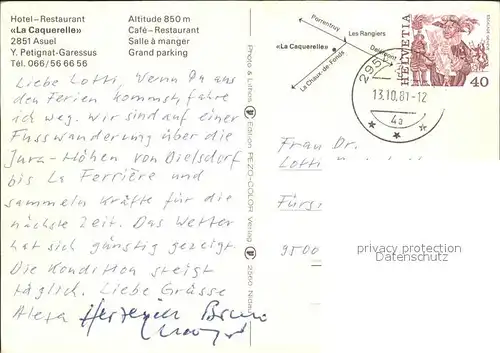 Hotel-Restaurant
«La Caquerelle»
2851 Asuel
Y. Petignat-Garessus
Tél. 066/56 66 56
Altitude 850 m
Café-Restaurant
Salle à manger
Grand parking
Porrentruy
Les Rangiers
«La Caquerelle»
Delémont
La Chaux-de-Fonds
HELVETIA
40
2951
13.10.81-12
4a
Liebe Lotti, Wenn Du aus
den Ferien kommst, fahre
ich weg. Wir sind auf einer
Fusswanderung über die
Jura-Höhen von Dielsdorf
bis La Ferrière und
sammeln Kräfte für die
nächste Zeit. Das Wetter
hat sich günstig gezeigt.
Die Kondition steigt
täglich. Liebe Grüsse
Alexa
Photo & Lithos
Edition PEZO-COLOR Verlag
2560 Nidau
Frau Dr.
Lotti
Fürs
9500
privacy protection
Datenschutz